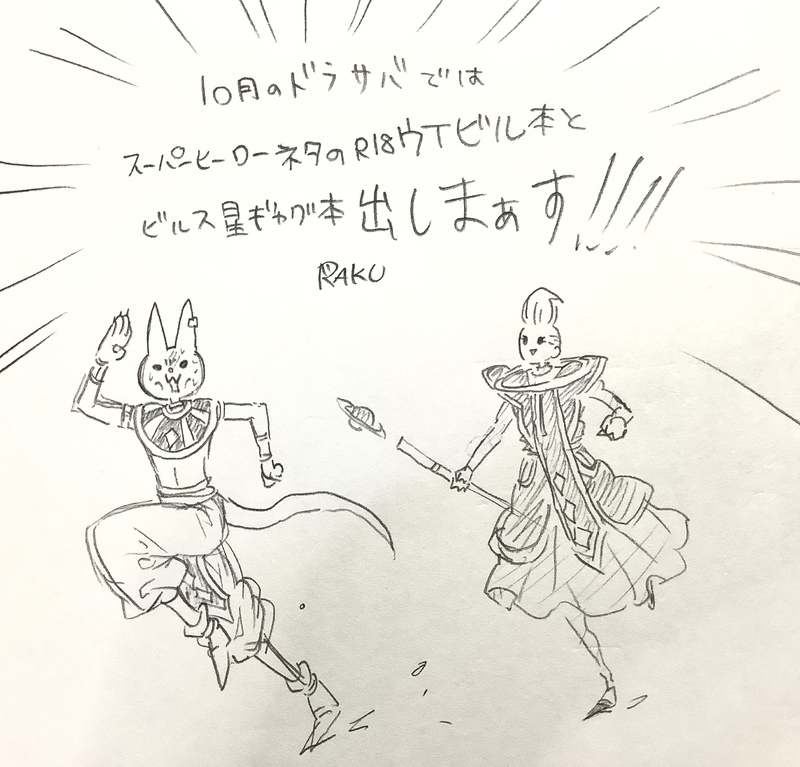 10月のドラサバでは
スーパーヒーローネタのR18ウイビル本と
ビルス星ギャグ本 出しまぁす!!!!
RAKU